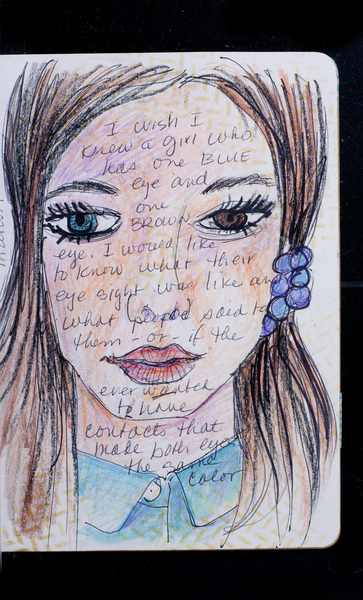 I wish I
knew a girl who
has one BLUE
eye and
one
BROWN
eye. I would like
to know what their
eye sight was like and
what people said to
them - or if the
ever wanted
to have
contacts that
make both eyes
the same
color